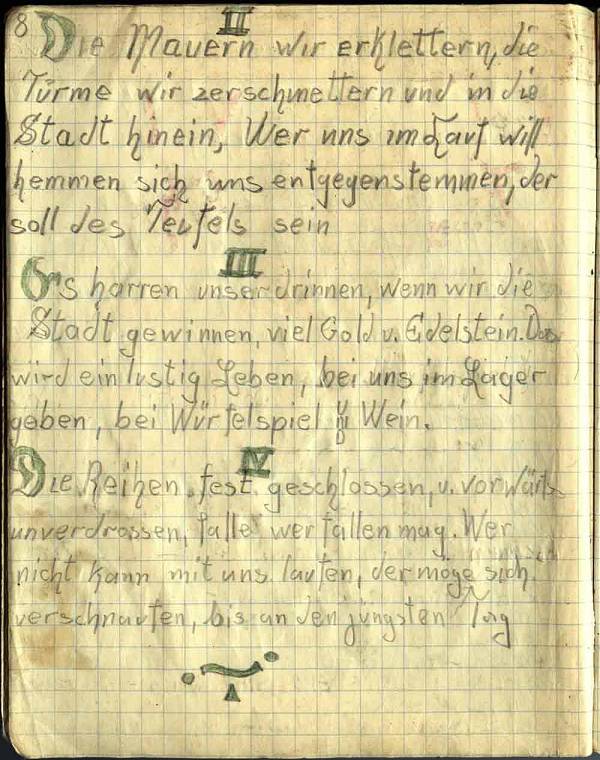 8
II
Die Mauern wir erklettern, die
Türme wir zerschmettern und in die
Stadt hinein, Wer uns im Lauf will
hemmen sich uns entgegenstemmen, der
soll des Teufels sein
III
Es harren unser drinnen, wenn wir die
Stadt gewinnen, viel Gold u. Edelstein. Das
wird ein lustig Leben, bei uns im Lager
geben, bei Würfelspiel und Wein.
IV
Die Reihen fest geschlossen, u. vorwärts
unverdrossen, falle wer fallen mag. Wer
nicht kann mit uns laufen, der möge sich
verschnaufen, bis an den jüngsten Tag